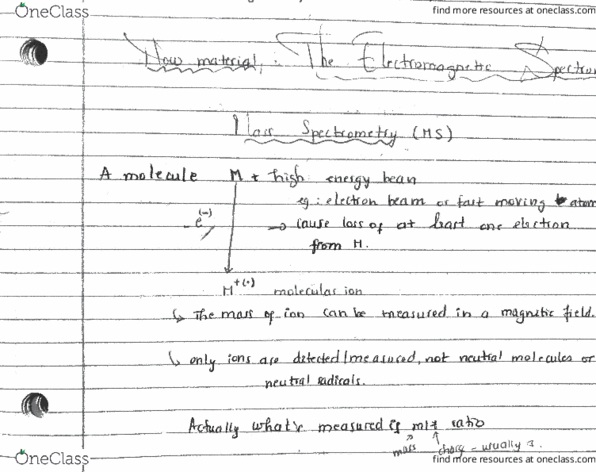 OneClass
find more resources at oneclass.com
New material: The Electromagnetic Spectrum
Mass Spectrometry (MS)
A molecule M + high energy beam
eg: electron beam or fast moving atom
- e(-)
→ cause loss of at least one electron
from M.
M+(•) molecular ion
↳ The mass of ion can be measured in a magnetic field.
↳ only ions are detected/measured, not neutral molecules or
neutral radicals.
Actually what's measured is m/z ratio
mass charge - usually
OneClass
find more resources at oneclass.com